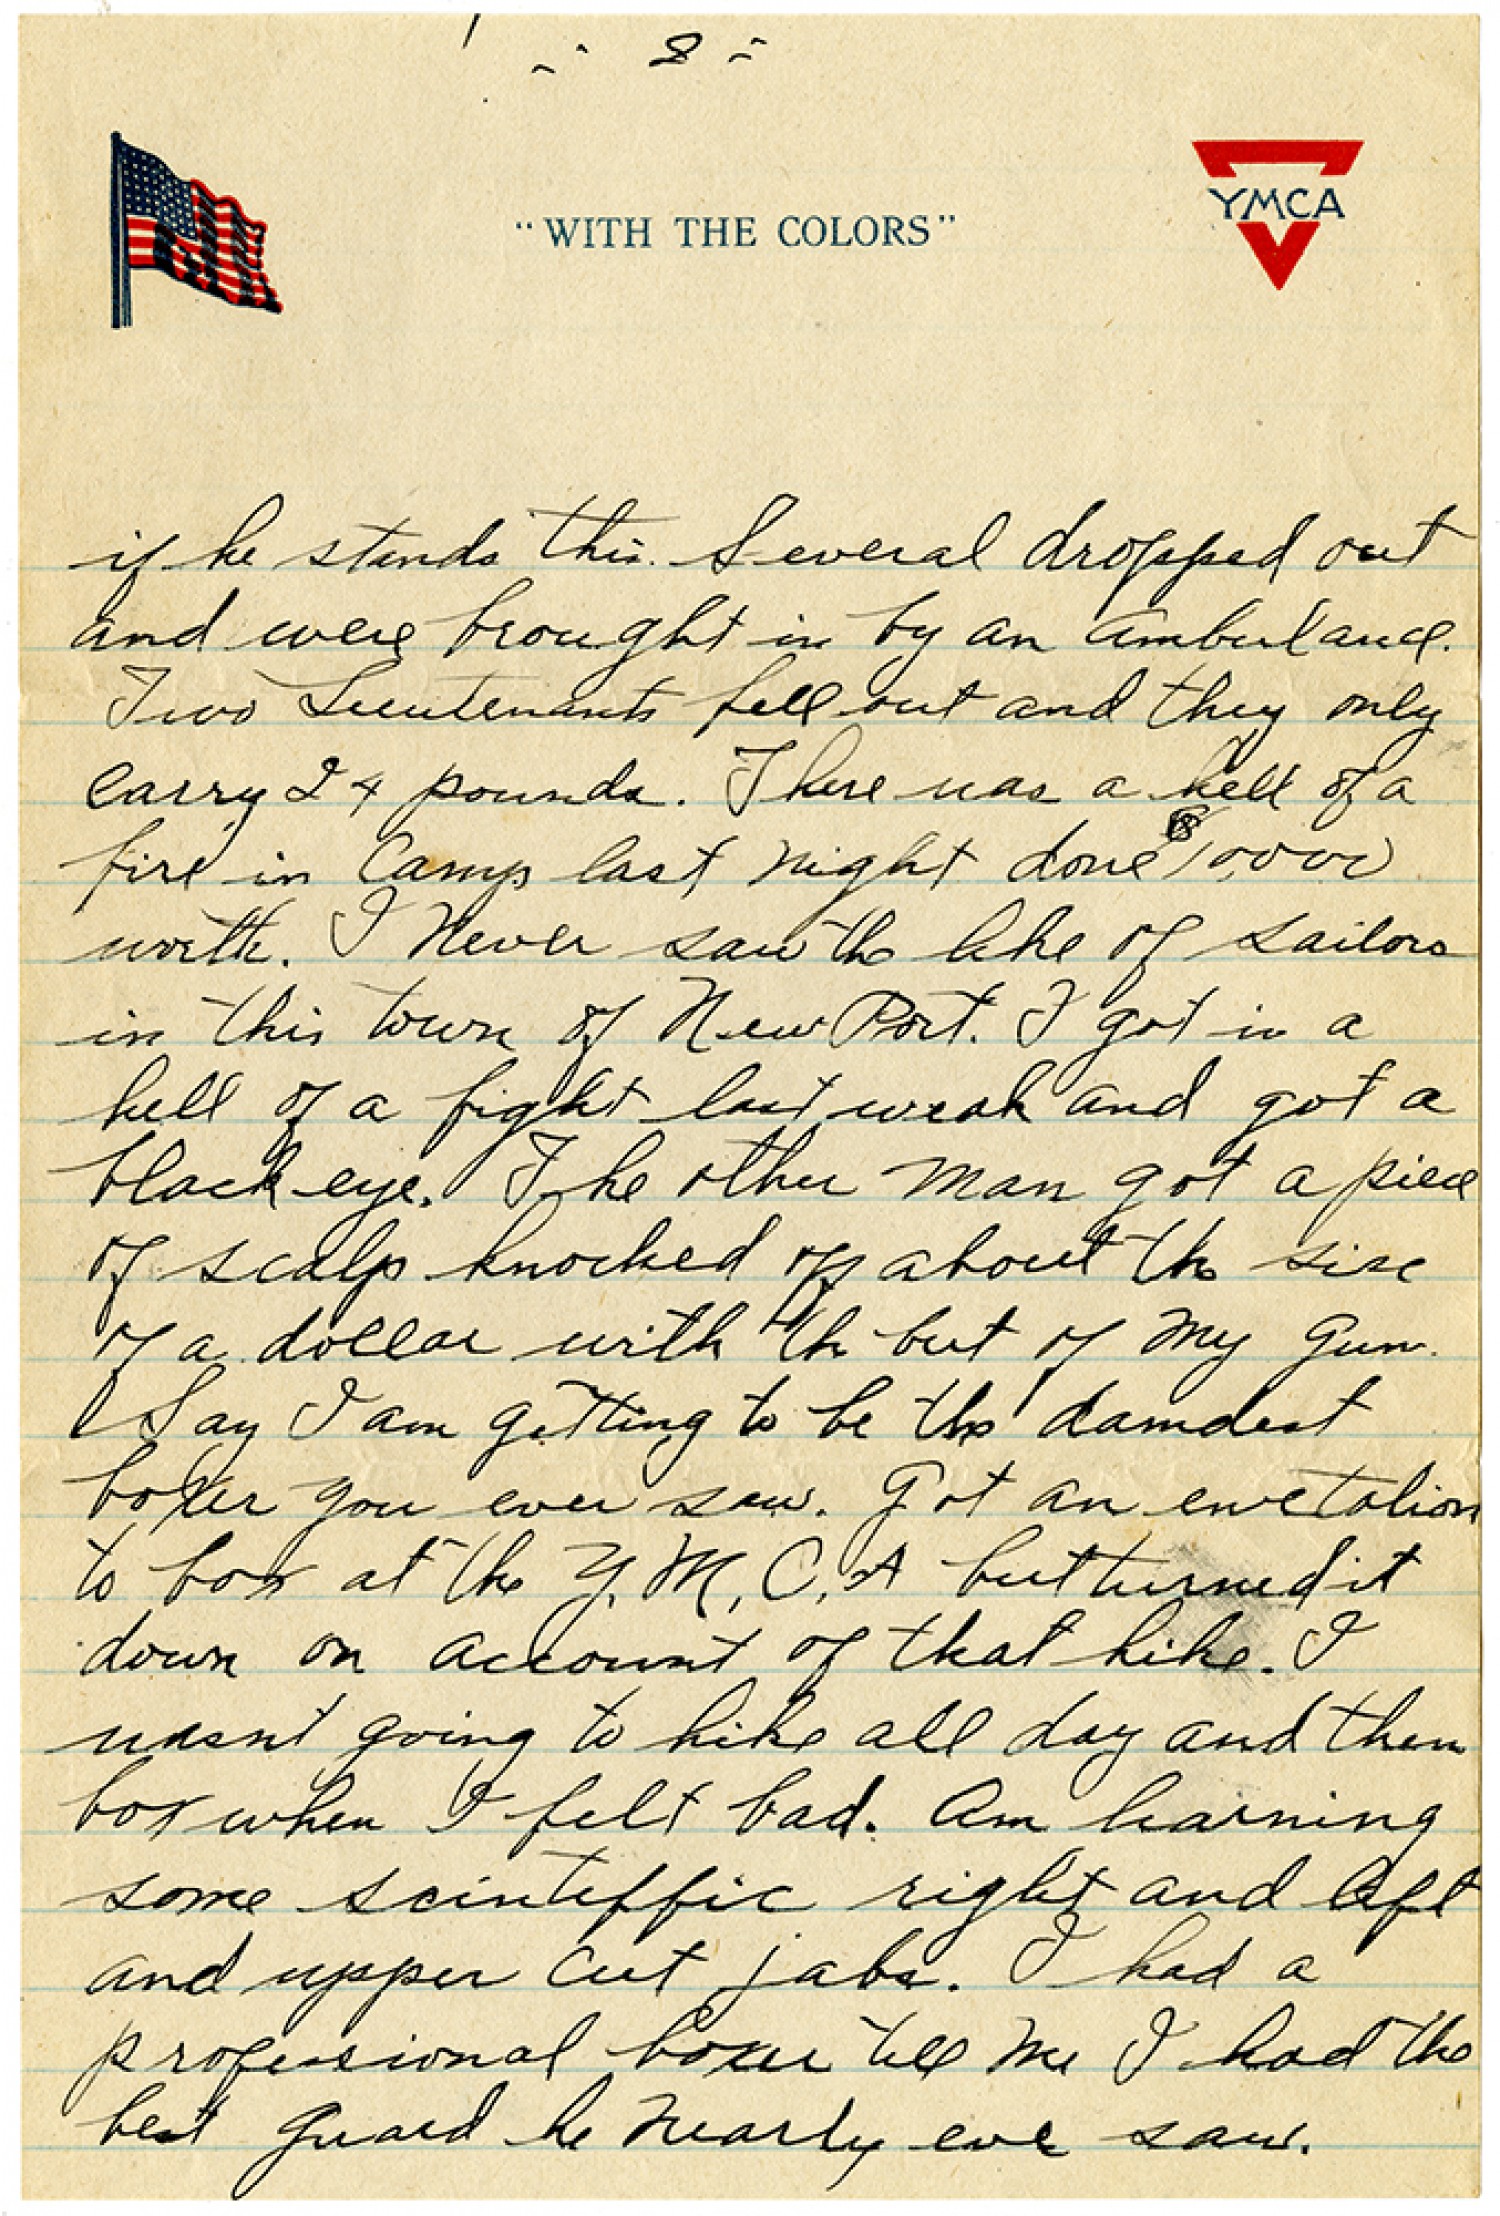 - 2 -
"WITH THE COLORS"
YMCA
if he stands this. Several dropped out
and were brought in by an ambulance.
Two Lieutenants fell out and they only
carry 24 pounds. There was a hell of a
fire in Camp last night done $10,000
worth. I Never saw the like of sailors
in this town of New Port. I got in a
hell of a fight last weak and got a
black eye. The other man got a piece
of scalp knocked off about the size
of a dollar with the but of my gun.
Say I am getting to be the damdest
boxer you ever saw. Got an envetation
to box at the Y. M. C. A but turned it
down on account of that hike. I
wasnt going to hike all day and then
box when I felt bad. Am learning
some scinteffic right and left
and upper cut jabs. I had a
professional boxer tell me I had the
best guard he nearly ever saw.